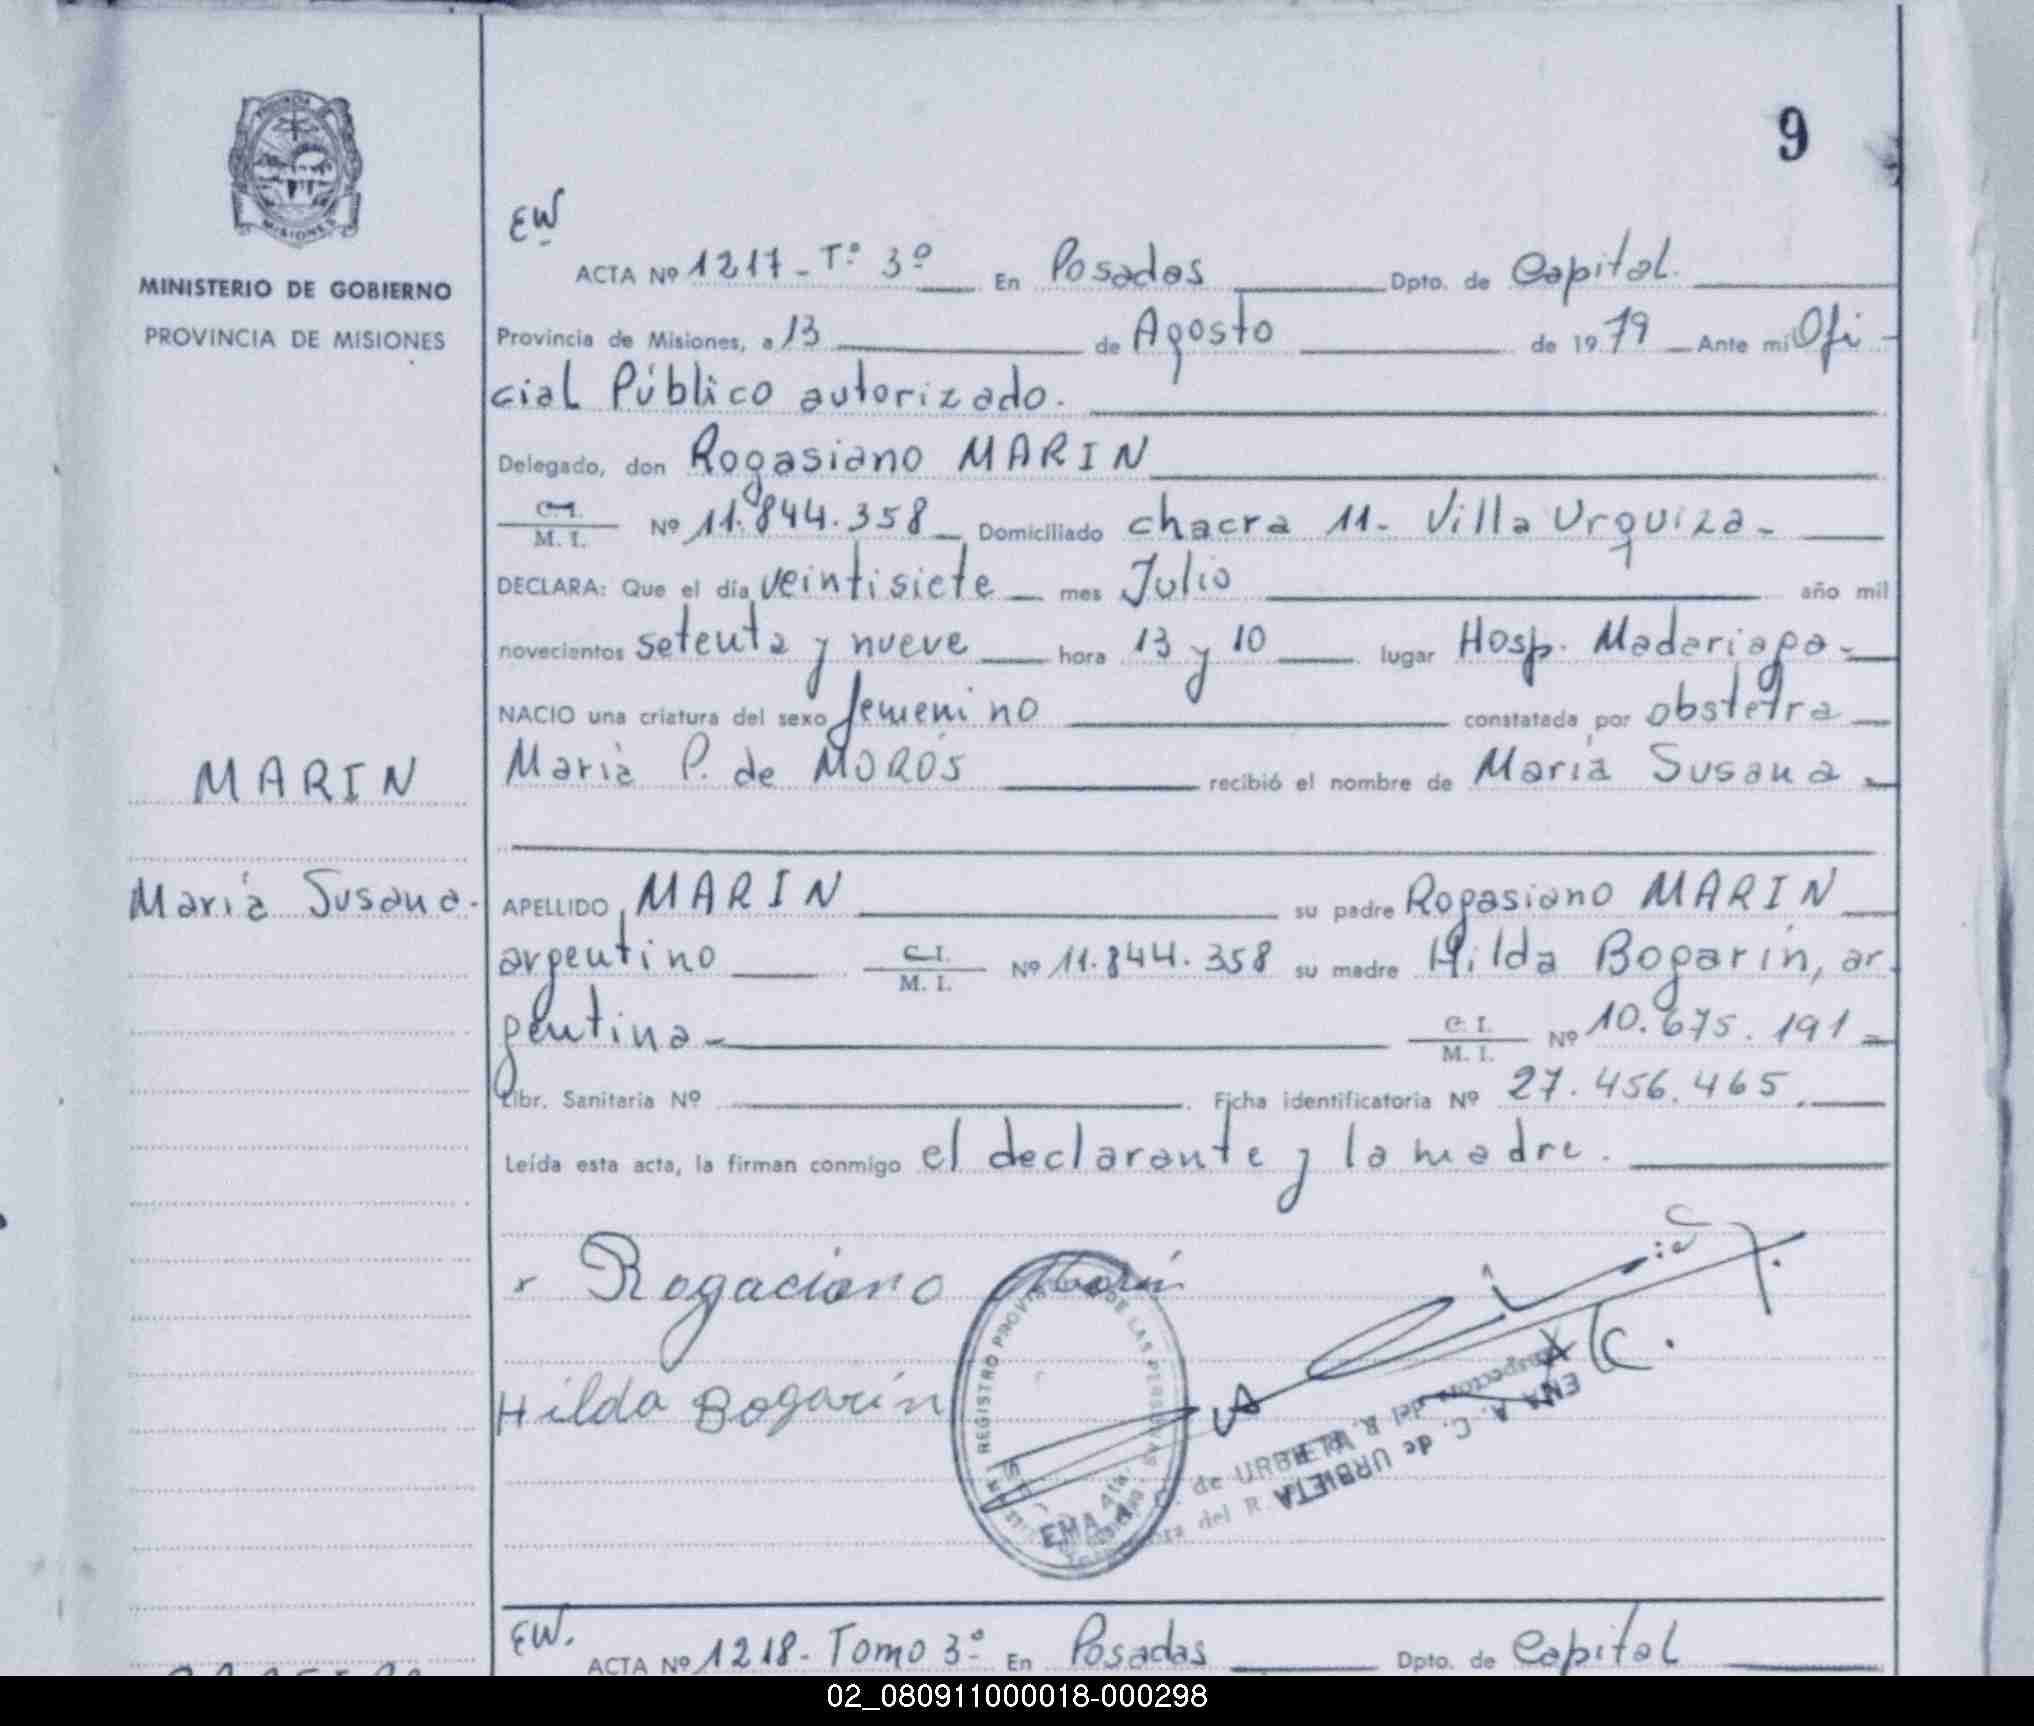 9
PROVINCIA
MISIONES
MINISTERIO DE GOBIERNO
PROVINCIA DE MISIONES
EW
ACTA Nº 1217 - Tº 3º En Posadas Dpto. de Capital.
Provincia de Misiones, a 13 de Agosto de 1979 Ante mi Ofi-
cial Público autorizado.
Delegado, don Rogasiano MARIN
C.I. / M. I. Nº 11.844.358 Domiciliado chacra 11- Villa Urquiza-
DECLARA: Que el día veintisiete mes Julio año mil
novecientos setenta y nueve hora 13 y 10 lugar Hosp. Madariaga-
NACIO una criatura del sexo femenino constatada por obstetra
MARIN
Maria P. de MOROS recibió el nombre de María Susana -
María Susana.
APELLIDO, MARIN su padre Rogasiano MARIN
argentino C.I. / M. I. Nº 11.844.358 su madre Hilda Bogarín, ar
gentina- C. I. / M. I. Nº 10.675.191-
Libr. Sanitaria Nº Ficha identificatoria Nº 27.456.465.
Leída esta acta, la firman conmigo el declarante y la madre.
Rogaciano Marin
Hilda Bogarín
REGISTRO PROVINCIAL DE LAS PERSONAS
EMA A. C. de URBIETA
del R.
EMA A. C. de URBIETA
del R.
EW.
ACTA Nº 1218- Tomo 3º En Posadas Dpto. de Capital
02_080911000018-000298